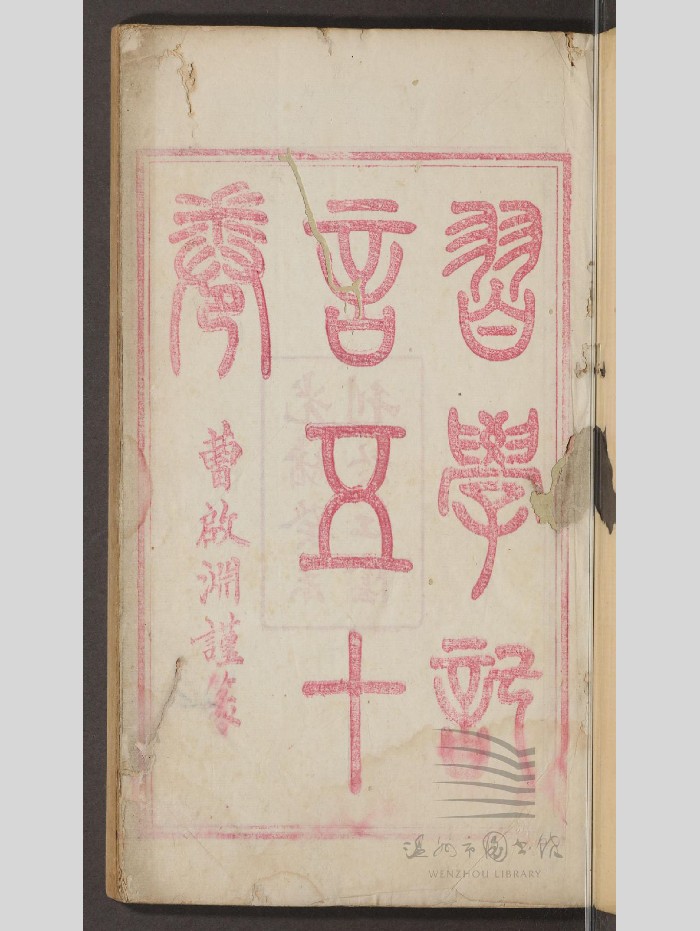 習學記
言五十
卷
曹啟淵謹篆
温州市图书馆
WENZHOU LIBRARY